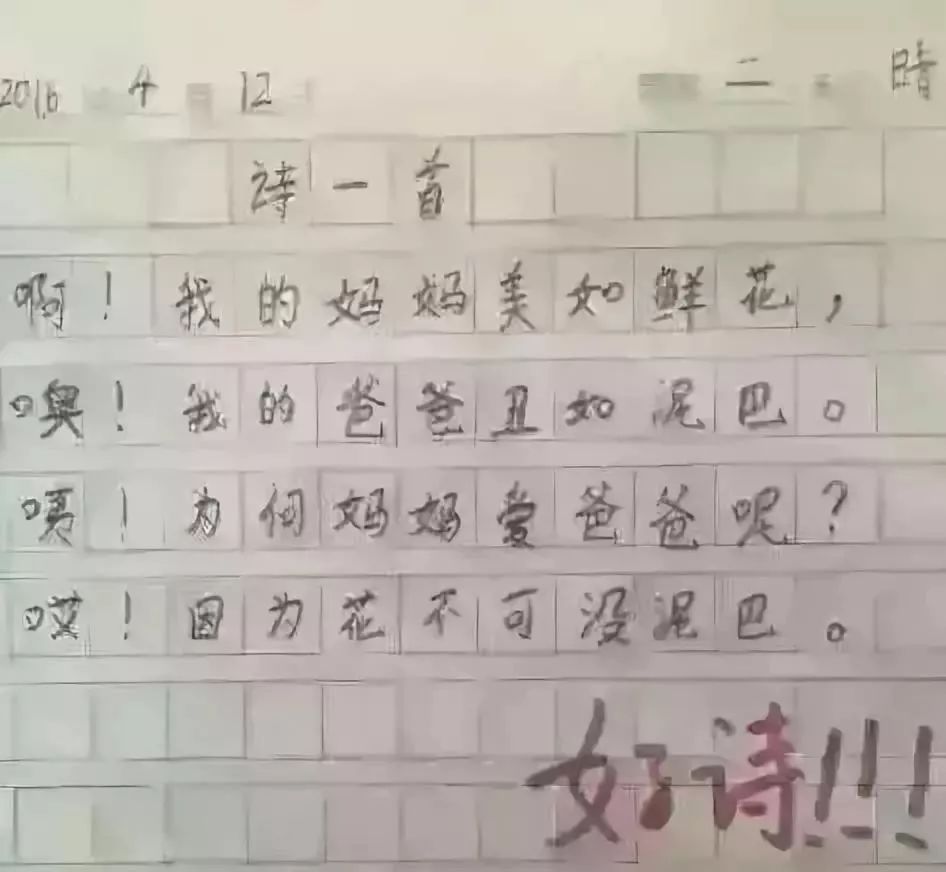 2016 4 12 二 晴
诗一首
啊！我的妈妈美如鲜花，
噢！我的爸爸丑如泥巴。
嗯！为何妈妈爱爸爸呢？
嘿！因为花不可没泥巴。
好诗!!!